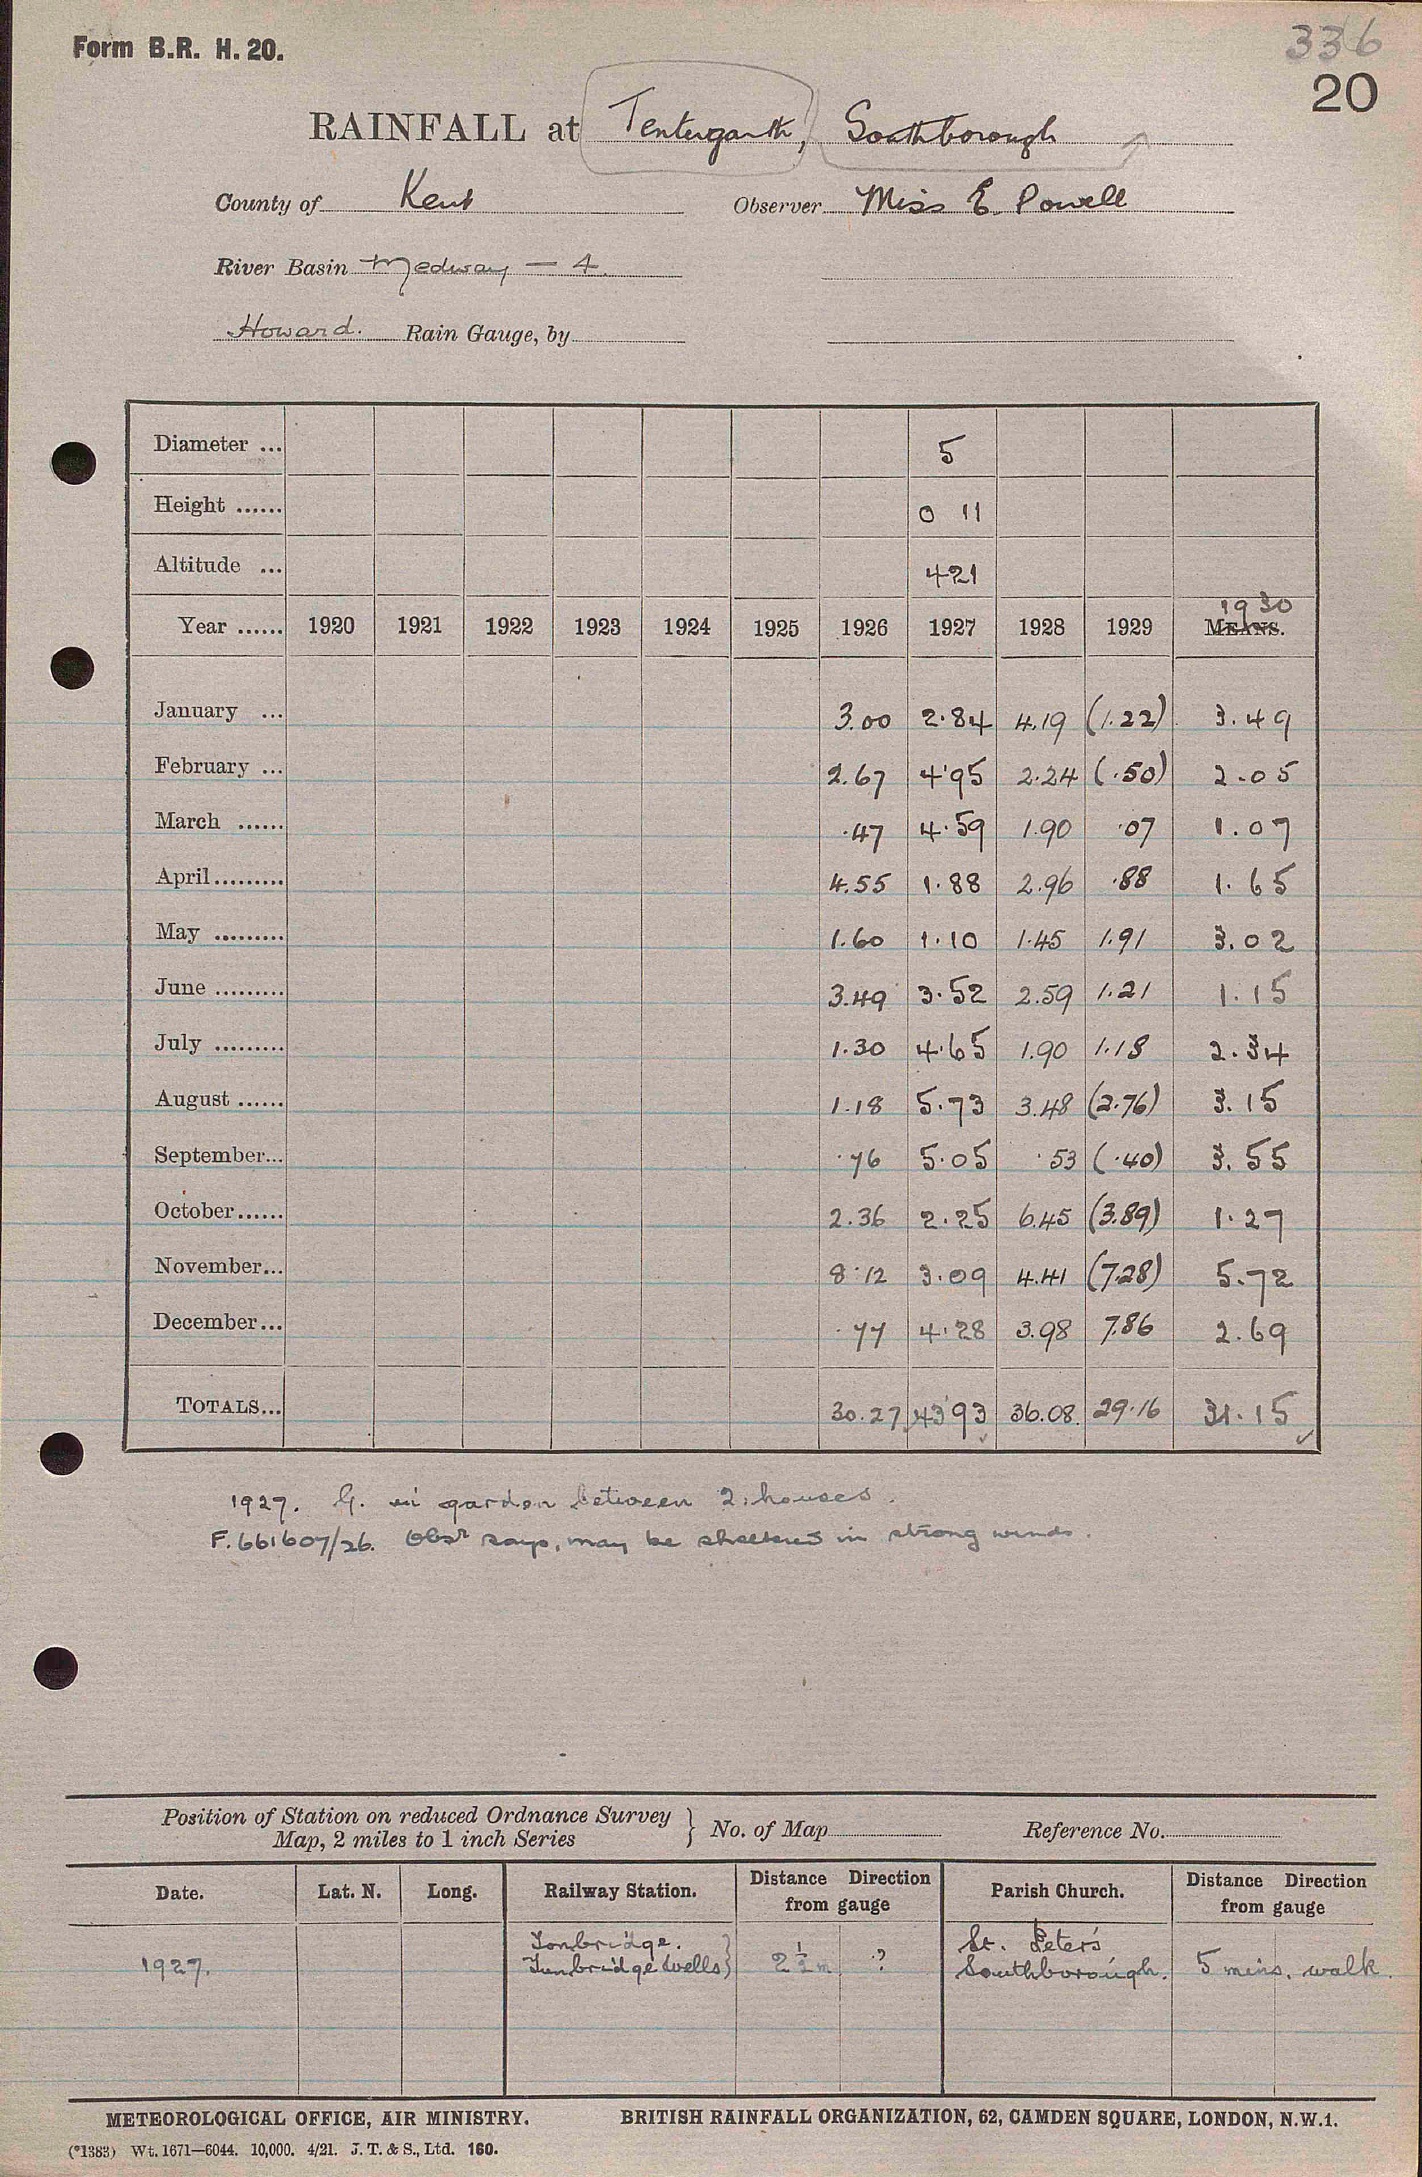 Form B.R. H. 20.
336
20
RAINFALL at Tentergarth, Southborough
County of Kent Observer Miss E Powell
River Basin Medway — 4.
Howard. Rain Gauge, by
Diameter ... 5
Height ...... 0 11
Altitude ... 421
1930
Year ...... 1920 1921 1922 1923 1924 1925 1926 1927 1928 1929 MEANS.
January ... 3.00 2.84 4.19 (1.22) 3.49
February ... 2.67 4.95 2.24 (.50) 2.05
March ...... .47 4.59 1.90 .07 1.07
April ......... 4.55 1.88 2.96 .88 1.65
May ......... 1.60 1.10 1.45 1.91 3.02
June ......... 3.49 3.52 2.59 1.21 1.15
July ......... 1.30 4.65 1.90 1.18 2.34
August ...... 1.18 5.73 3.48 (2.76) 3.15
September... .76 5.05 .53 (.40) 3.55
October...... 2.36 2.25 6.45 (3.89) 1.27
November... 8.12 3.09 4.41 (7.28) 5.72
December... .77 4.28 3.98 7.86 2.69
TOTALS... 30.27 43.93 36.08. 29.16 31.15
1927. G. in garden between 2 houses.
F.661607/26. Obsr says, may be sheltered in strong winds.
Position of Station on reduced Ordnance Survey
Map, 2 miles to 1 inch Series } No. of Map Reference No.
Date. Lat. N. Long. Railway Station. Distance Direction from gauge Parish Church. Distance Direction from gauge
Tonbridge. St. Peter's
1927. Tunbridge Wells} 2½ m ? Southborough. 5 mins. walk.
METEOROLOGICAL OFFICE, AIR MINISTRY. BRITISH RAINFALL ORGANIZATION, 62, CAMDEN SQUARE, LONDON, N.W.1.
(*1383) Wt. 1671—6044. 10,000. 4/21. J. T. & S., Ltd. 160.